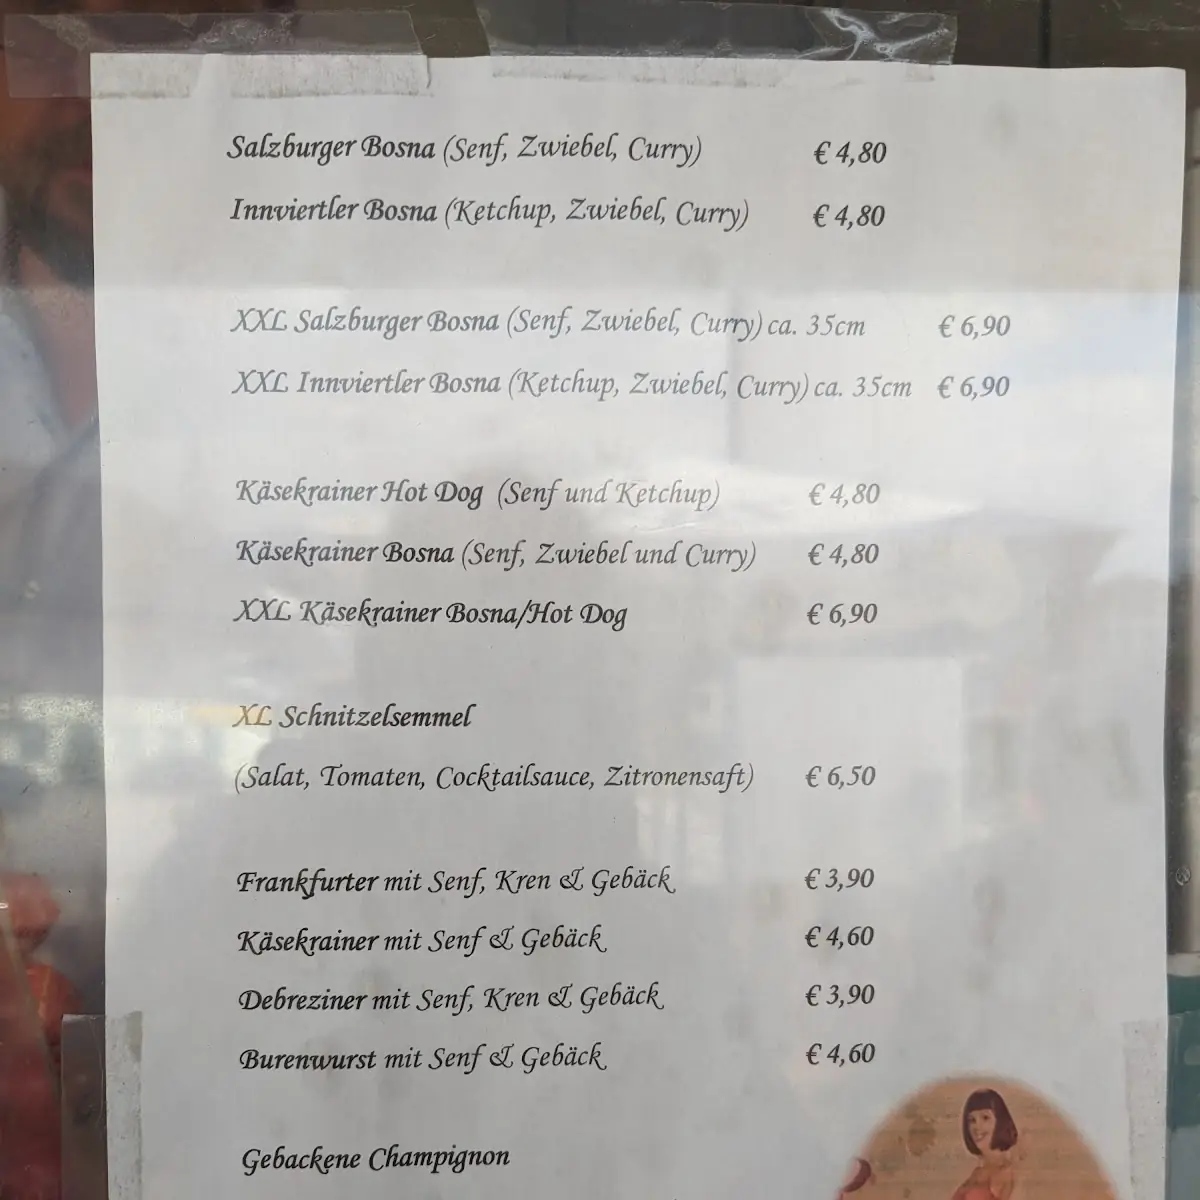 Salzburger Bosna (Senf, Zwiebel, Curry) € 4,80
Innviertler Bosna (Ketchup, Zwiebel, Curry) € 4,80
XXL Salzburger Bosna (Senf, Zwiebel, Curry) ca. 35cm € 6,90
XXL Innviertler Bosna (Ketchup, Zwiebel, Curry) ca. 35cm € 6,90
Käsekrainer Hot Dog (Senf und Ketchup) € 4,80
Käsekrainer Bosna (Senf, Zwiebel und Curry) € 4,80
XXL Käsekrainer Bosna/Hot Dog € 6,90
XL Schnitzelsemmel
(Salat, Tomaten, Cocktailsauce, Zitronensaft) € 6,50
Frankfurter mit Senf, Kren & Gebäck € 3,90
Käsekrainer mit Senf & Gebäck € 4,60
Debreziner mit Senf, Kren & Gebäck € 3,90
Burenwurst mit Senf & Gebäck € 4,60
Gebackene Champignon